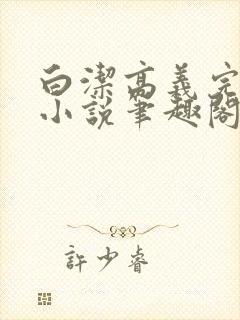 白潔高義完
小說筆趣閣
許少睿